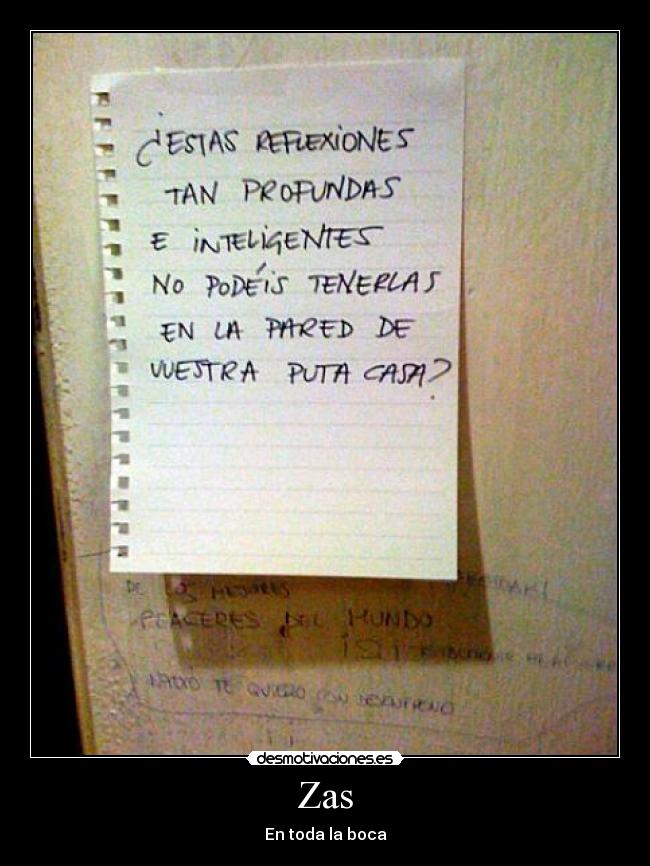 ¿ESTAS REFLEXIONES
TAN PROFUNDAS
E INTELIGENTES
NO PODÉIS TENERLAS
EN LA PARED DE
VUESTRA PUTA CASA?
DE LOS MEJORES
PLACERES DEL MUNDO
¡SI
NACIO TE QUIERO CON DESENFRENO
desmotivaciones.es
Zas
En toda la boca